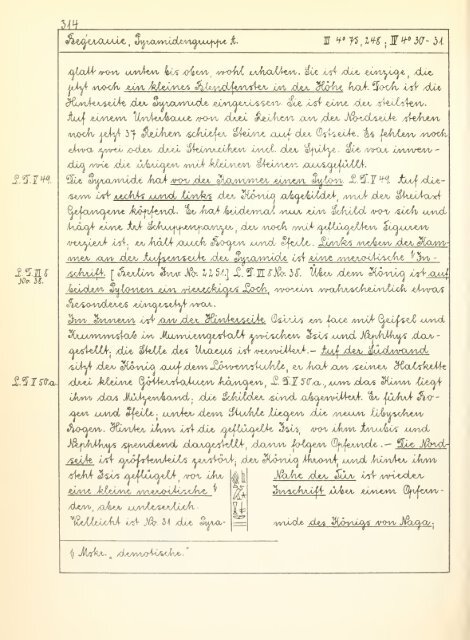 314
Begerauie, Pyramidengruppe A. III 4° 75, 248; IV 4° 30-31
glatt von unten bis oben, wohl erhalten. Sie ist die einzige, die
jetzt noch ein kleines Blendfenster in der Höhe hat. Doch ist die
Hinterseite der Pyramide eingerissen Sie ist eine der steilsten.
Auf einem Unterbaue von drei Reihen an der Nordseite stehen
noch jetzt 37 Reihen schiefer Steine auf der Ostseite. Es fehlen noch
etwa zwei oder drei Steinreihen incl. der Spitze. Sie war inwen-
dig wie die übrigen mit kleinen Steinen ausgefüllt.
L.D. V 49. Die Pyramide hat vor der Kammer einen Pylon L.D. V 49. Auf die-
sem ist rechts und links der König abgebildet, mit der Streitaxt
Gefangene köpfend. Er hat beidemal nur ein Schild vor sich und
trägt eine Art Schuppenpanzer, der noch mit geflügelten Figuren
verziert ist, er hält auch Bogen und Pfeile. Links neben der Kam-
mer an der Aufsenseite der Pyramide ist eine meroitische ¹⁾ In-
L.D. VI 8 No. 38. schrift. [Berlin Inv No. 2251] L.D. VI 8 No. 38. Über dem König ist auf
beiden Pylonen ein viereckiges Loch, worein wahrscheinlich etwas
Besonderes eingesetzt war.
Im Innern ist an der Hinterseite Osiris en face mit Geifsel und
Krummstab in Mumiengestalt zwischen Isis und Nephthys dar-
gestellt; die Stelle des Uraeus ist verwittert. – Auf der Südwand
sitzt der König auf dem Löwenstuhle, er hat an seiner Halskette
L.D. V 50a. drei kleine Götterstatuen hängen, L.D. V 50a, um das Kinn liegt
ihm das Mützenband; die Schilder sind abgewittert. Er führt Bo-
gen und Pfeile; unter dem Stuhle liegen die neun libyschen
Bogen. Hinter ihm ist die geflügelte Isis, vor ihm Anubis und
Nephthys spendend dargestellt, dann folgen Opfernde. – Die Nord-
seite ist gröfstenteils zerstört, der König thront, und hinter ihm
steht Isis geflügelt, vor ihr Nahe der Tür ist wieder
eine kleine meroitische ¹⁾ Inschrift über einem Opfern-
den, aber unleserlich.
Vielleicht ist No. 31 die Pyra- mide des Königs von Naga;
¹⁾ Mskr. „demotische."